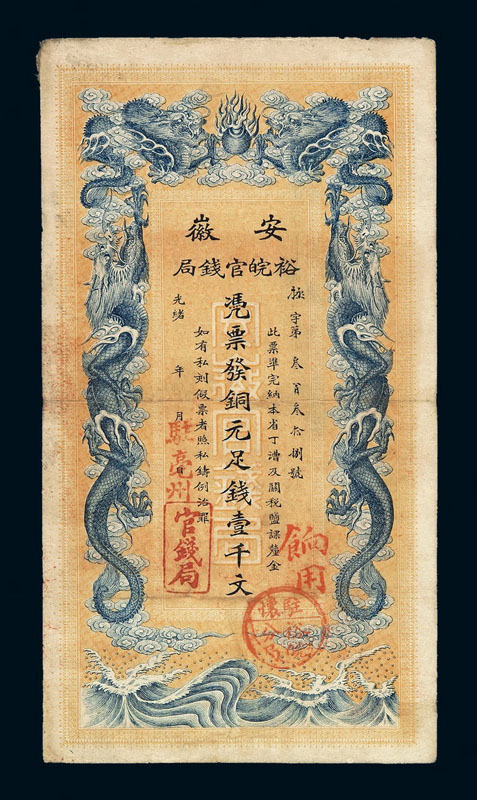 安徽
裕皖官錢局
字第叁百叁拾捌號
此票準完納本省丁漕及關稅鹽課釐金
憑票發銅元足錢壹千文
如有私刻假票者照私鑄例治罪
光緒 年 月 日
駐亳州
官錢局
餉用